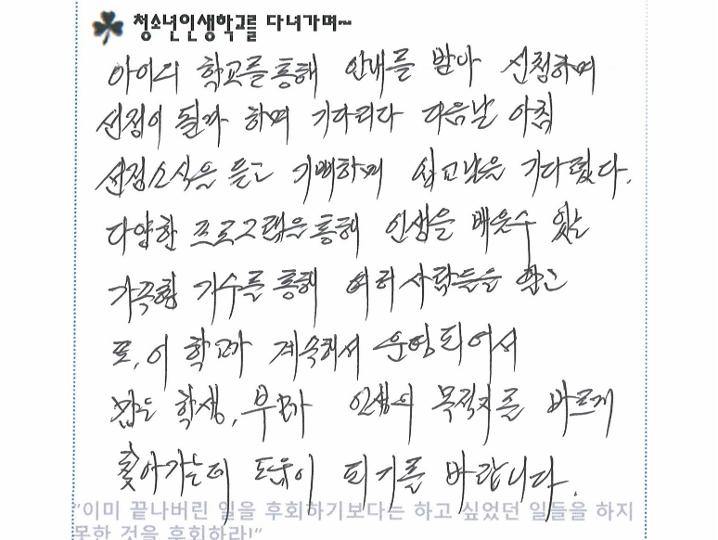 청소년인생학교를 다녀가며~
아이의 학교를 통해 안내를 받아 신청하며
선정이 될까 하며 기다리다 다음날 아침
선정소식을 듣고 기뻐하며 입교날을 기다렸다.
다양한 프로그램을 통해 인생을 배울수 있는
가족힐 가수를 통해 여러 사람들을 알고
또, 이 학교가 계속해서 운영되어서
많은 학생, 부모가 인생의 목적지를 바르게
찾아가는데 도움이 되기를 바랍니다.
"이미 끝나버린 일을 후회하기보다는 하고 싶었던 일들을 하지
못한 것을 후회하라!"